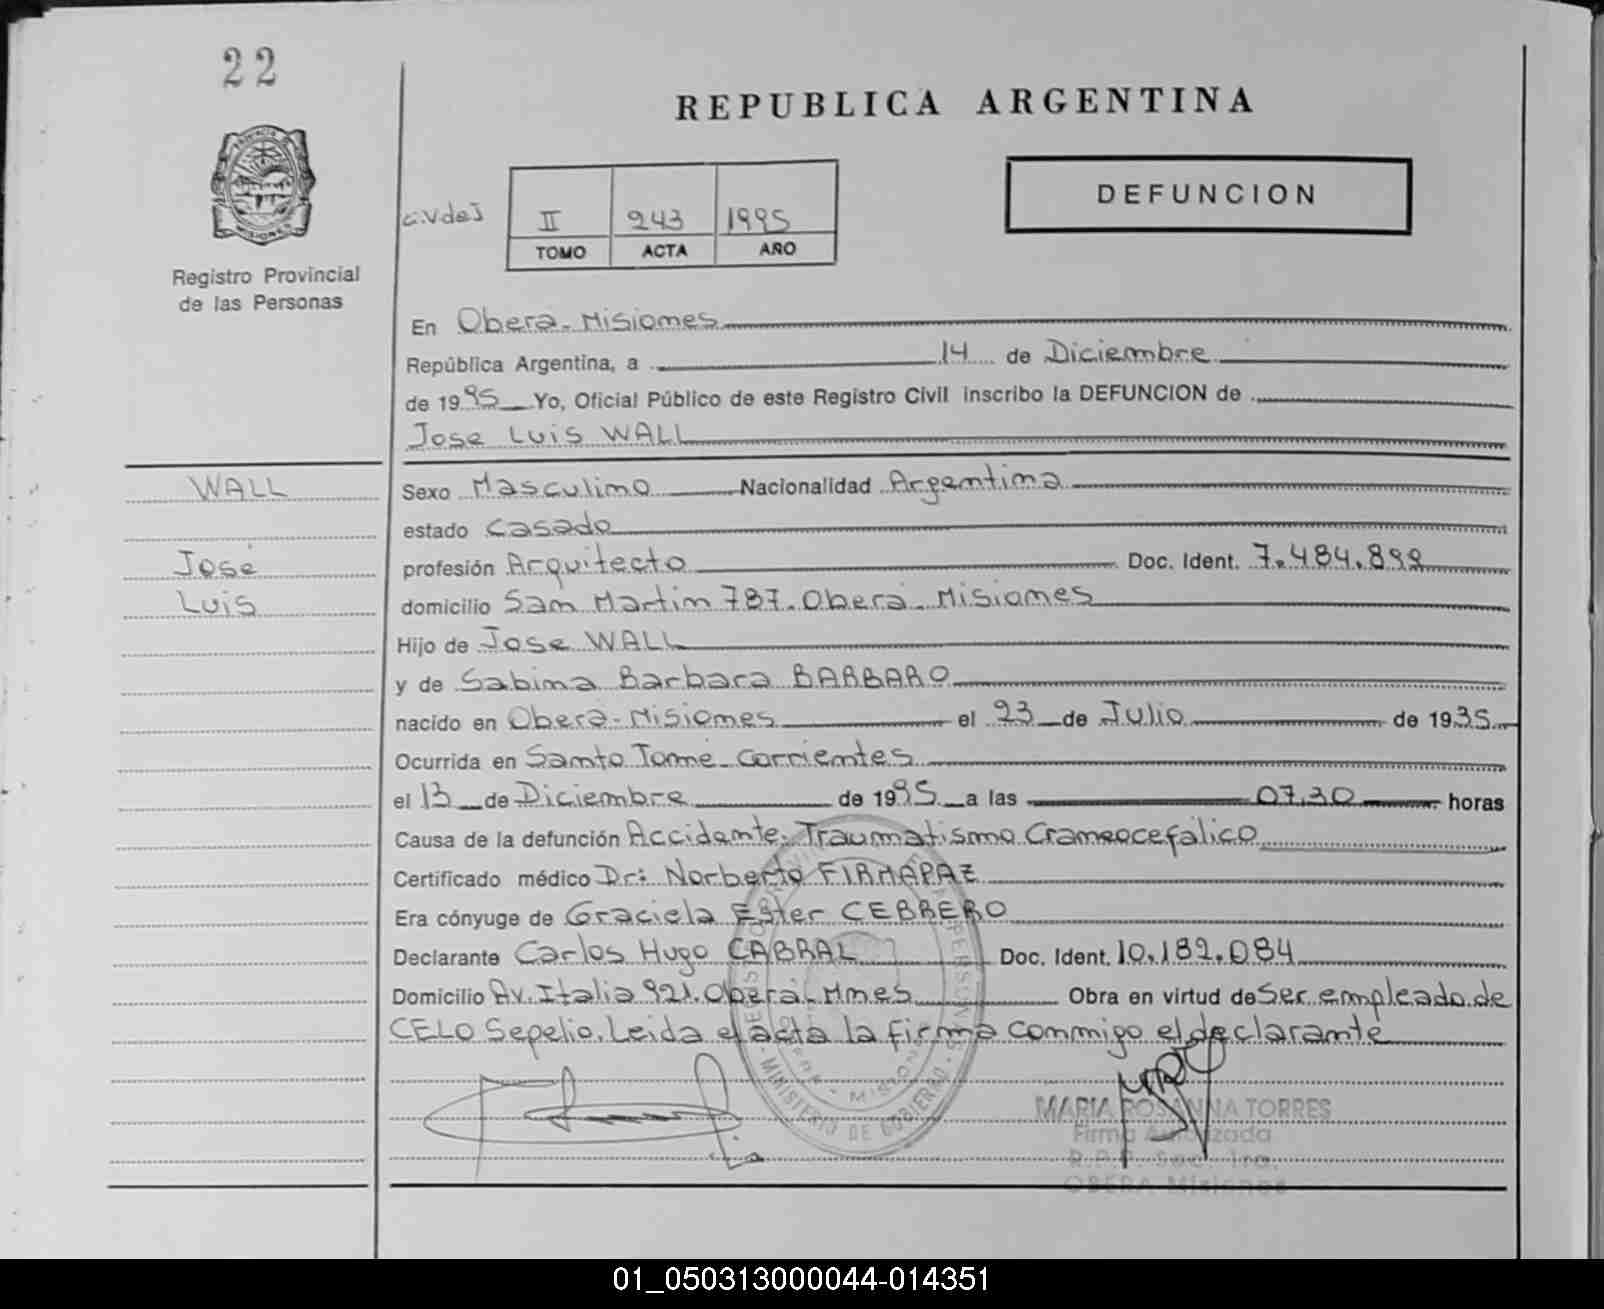 22
REPUBLICA ARGENTINA
DEFUNCION
C.VdeJ
II 243 1995
TOMO ACTA AÑO
PROVINCIA DE MISIONES
Registro Provincial
de las Personas
En Obera-Misiones
República Argentina, a 14 de Diciembre
de 1995 Yo, Oficial Público de este Registro Civil inscribo la DEFUNCION de
Jose Luis WALL
WALL
José
Luis
Sexo Masculino Nacionalidad Argentina
estado Casado
profesión Arquitecto Doc. Ident. 7.484.899
domicilio San Martin 787. Oberá. Misiones
Hijo de Jose WALL
y de Sabina Barbara BARBARO
nacido en Oberá-Misiones el 23 de Julio de 1935
Ocurrida en Santo Tomé-Corrientes
el 13 de Diciembre de 1995 a las 07,30 horas
Causa de la defunción Accidente. Traumatismo Craneocefálico
Certificado médico Dr: Norberto FIRMAPAZ
Era cónyuge de Graciela Ester CEBRERO
Declarante Carlos Hugo CABRAL Doc. Ident. 10.182.084
Domicilio Av. Italia 921. Oberá-Mnes Obra en virtud de Ser empleado de
CELO Sepelio. Leida el acta la firma conmigo el declarante
MINISTERIO DE GOBIERNO
MARIA ROSANNA TORRES
Firma Autorizada
R.P.P. Sec. 1ra.
OBERA Misiones
01_050313000044-014351